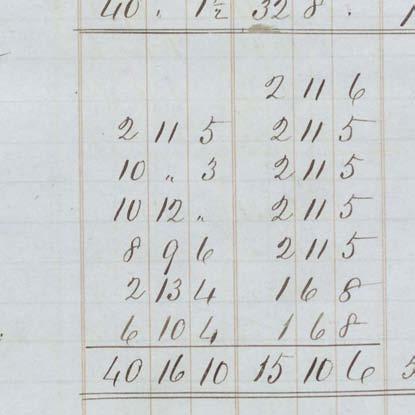 40 " 1½ 32 8 .
2 11 6
2 11 5 2 11 5
10 " 3 2 11 5
10 12 " 2 11 5
8 9 6 2 11 5
2 13 4 1 6 8
6 10 4 1 6 8
40 16 10 15 10 6 5